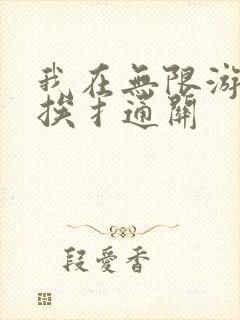 我在無限游
挨才通關
段愛香